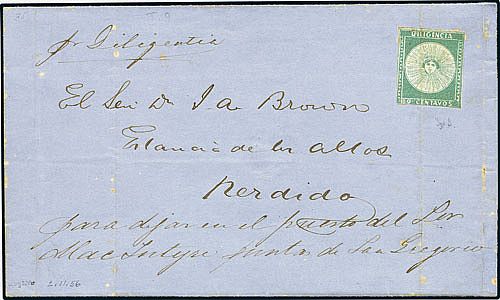 pr Diligencia
DILIGENCIA
60 CENTAVOS
El Sen Dn J A Brown
Estancia de los Altos
Perdido
para dejar en el puerto del Sor
Mac Intyre puntas de San Gregorio
2.11.56